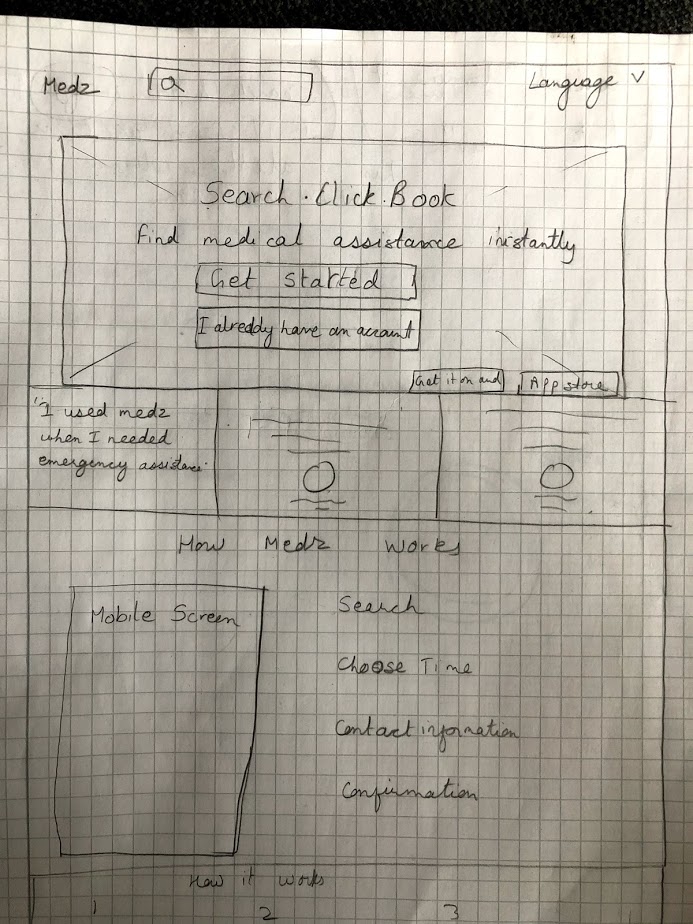 Medz
Language
Search . Click . Book
Find medical assistance instantly
Get started
I alreddy have an account
Get it on and
App store
"I used medz
when I needed
emergency assistance"
How Medz Works
Mobile Screen
Search
Choose Time
Contact information
Confirmation
How it works
1 2 3